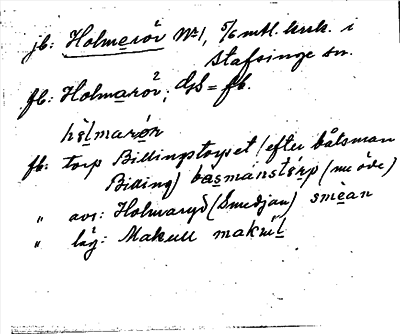 jb: Holmerör N:o 1, 5/6 mtl. krk. i
Stafsinge sn.
fb: Holmarör 2, d/s = fb.
hólmarör
fb: torp Billingtorpet (efter båtsman
Billing) basmanstórp (nu öde)
" avs: Holmaryd (Smedjan) smèan
" låg: Makull makul